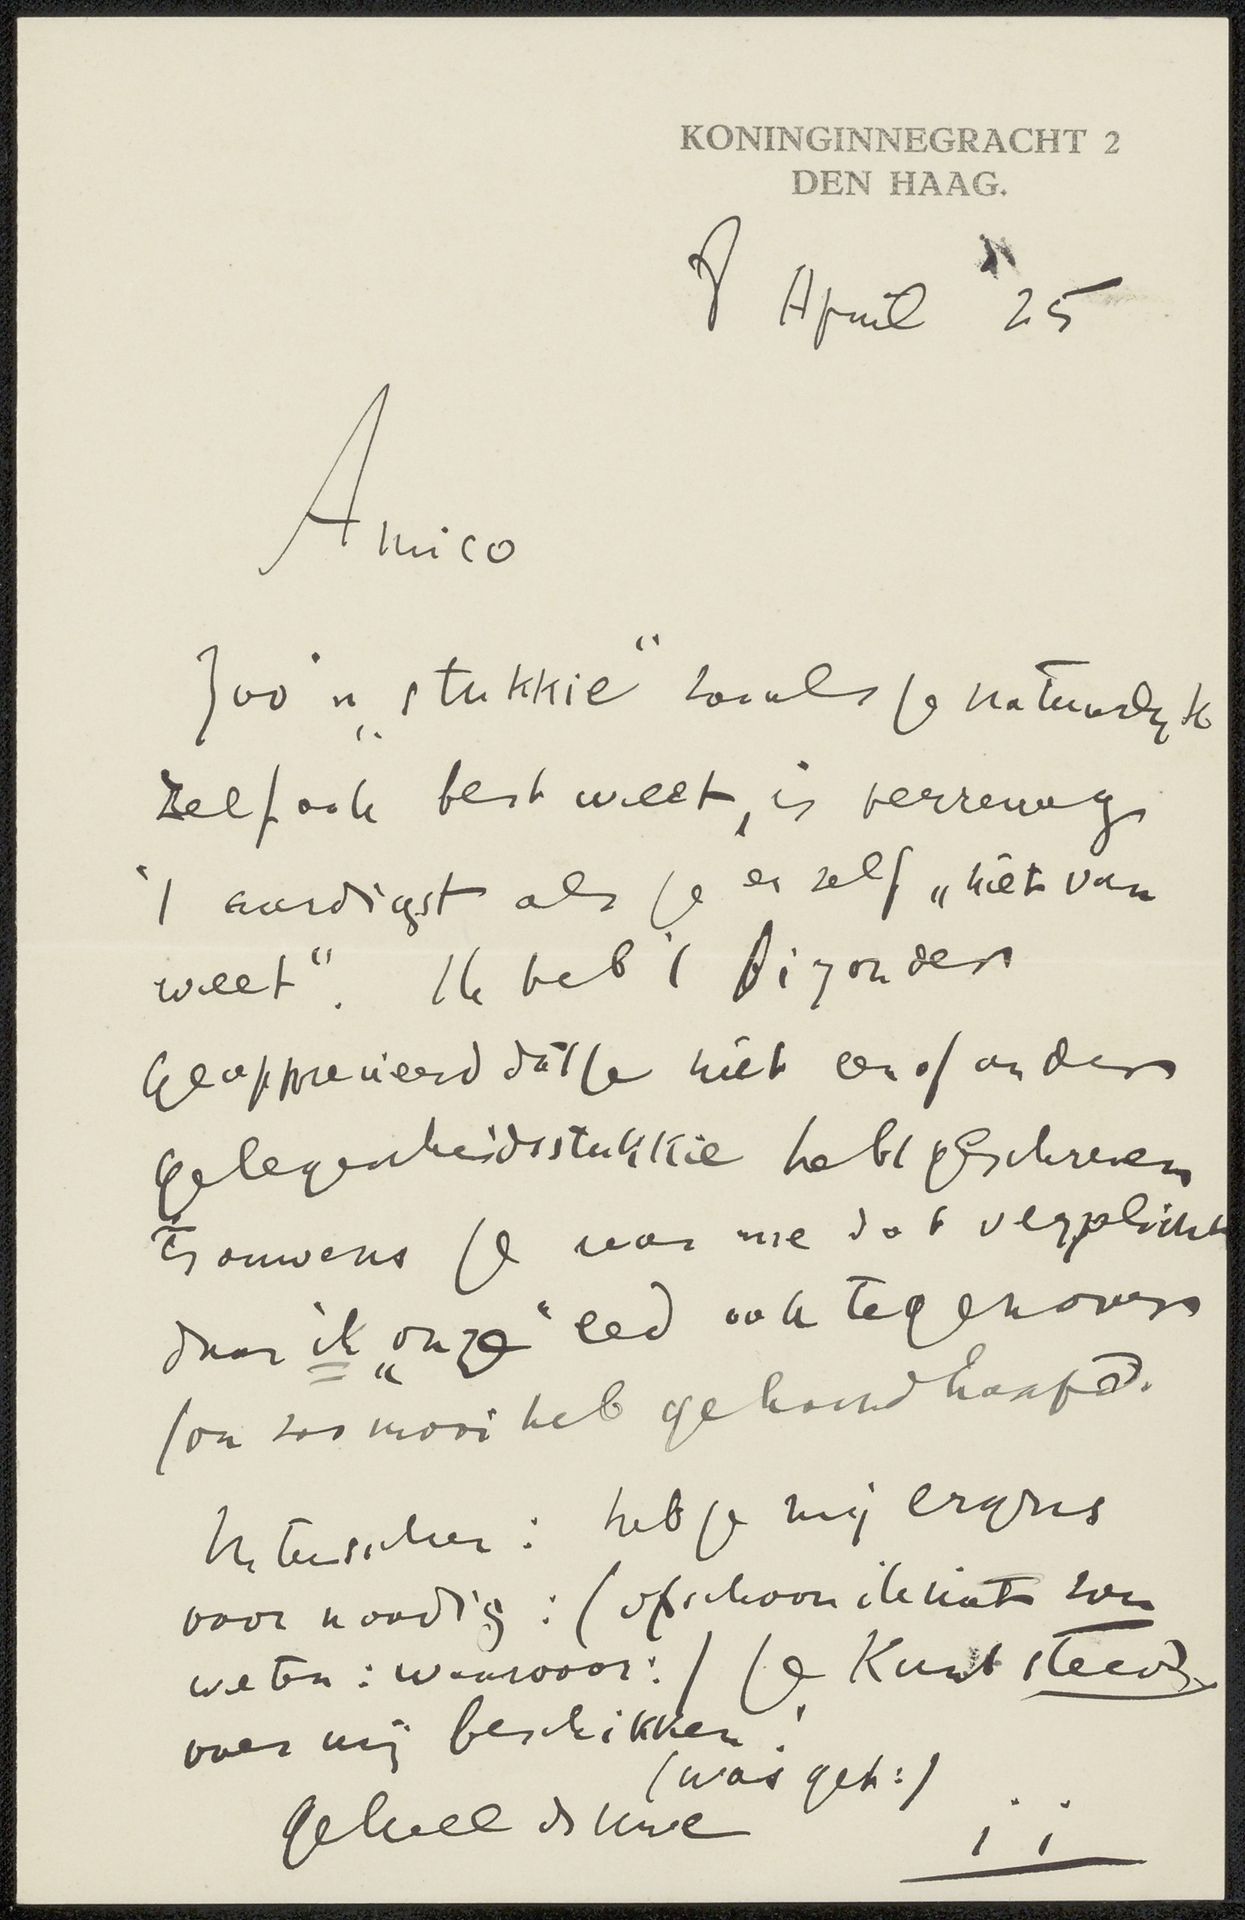 KONINGINNEGRACHT 2
DEN HAAG.
8 April '25
Amico
Zoo 'n „stukkie" zooals je natuurlijk
zelf ook best weet, is verreweg
't aardigst als je er zelf „niet van
weet". Ik heb 't bizonder
geapprecieerd dat je niet een of ander
gelegenheidsstukkie hebt geschreven
Trouwens je was me dat verplicht
daar ik „onze" eed ook tegenover
jou zoo mooi heb gehandhaafd.
Intusschen: heb je mij ergens
voor noodig: (ofschoon ik niet zou
weten: waarvoor:) je kunt steeds
over mij beschikken!
(was get:)
geheel de uwe